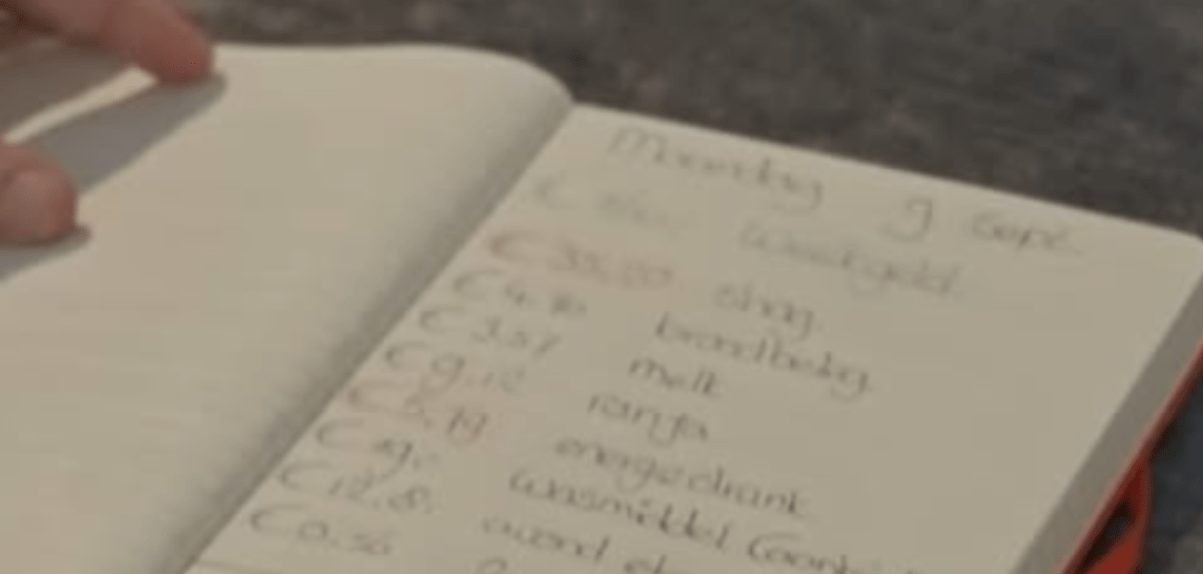 Maandag 9 sept.
€ weekgeld
€ 35.20 shag
€ 4.70 broodbeleg
€ 3.57 melk
€ 9.12 ranja
€ 5.79 energiedrank
€ 19. wasmiddel
€ 12.8. avond
€ 0.56